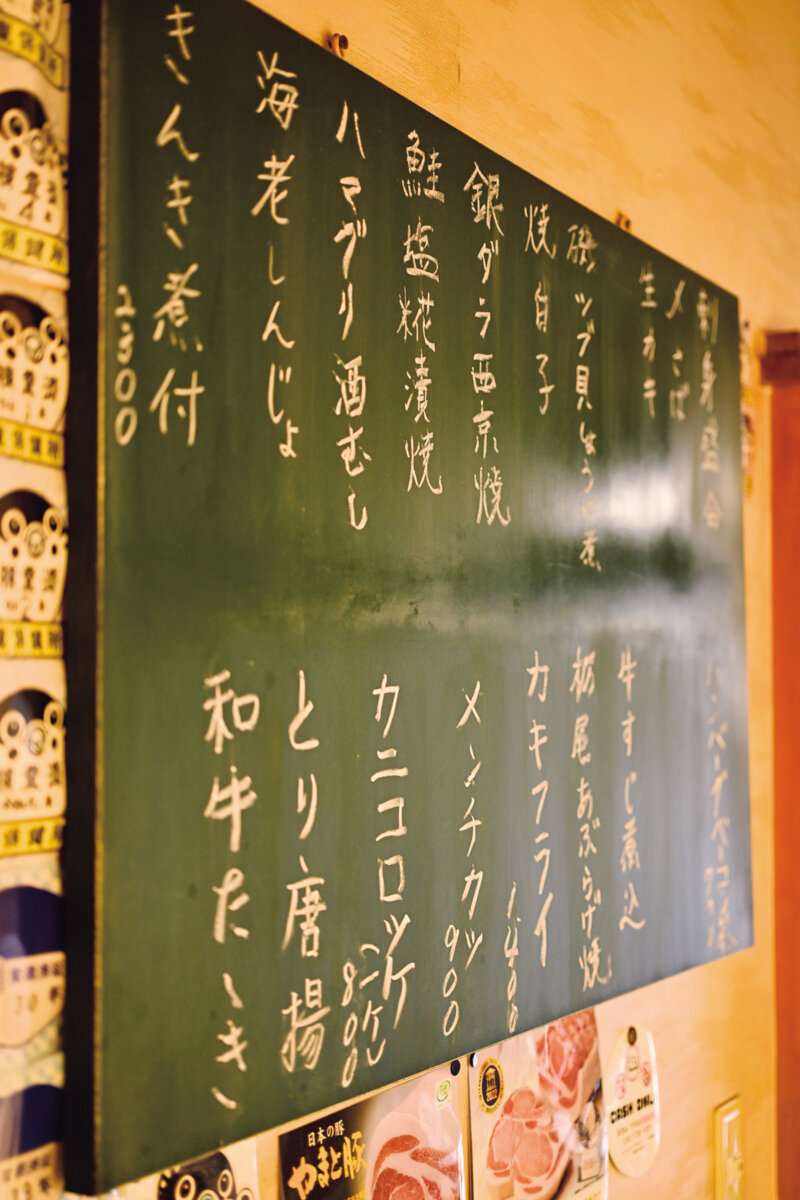 刺身盛合
〆さば
生カキ
磯ツブ貝しょうゆ煮
焼白子
銀ダラ西京焼
鮭塩糀漬焼
ハマグリ酒むし
海老しんじょ
きんき煮付
2800
牛すじ煮込
栃尾あぶらげ焼
カキフライ
1,400
メンチカツ
900
カニコロッケ
(二ケ)
800
とり唐揚
和牛たゝき
日本の豚
やまと豚